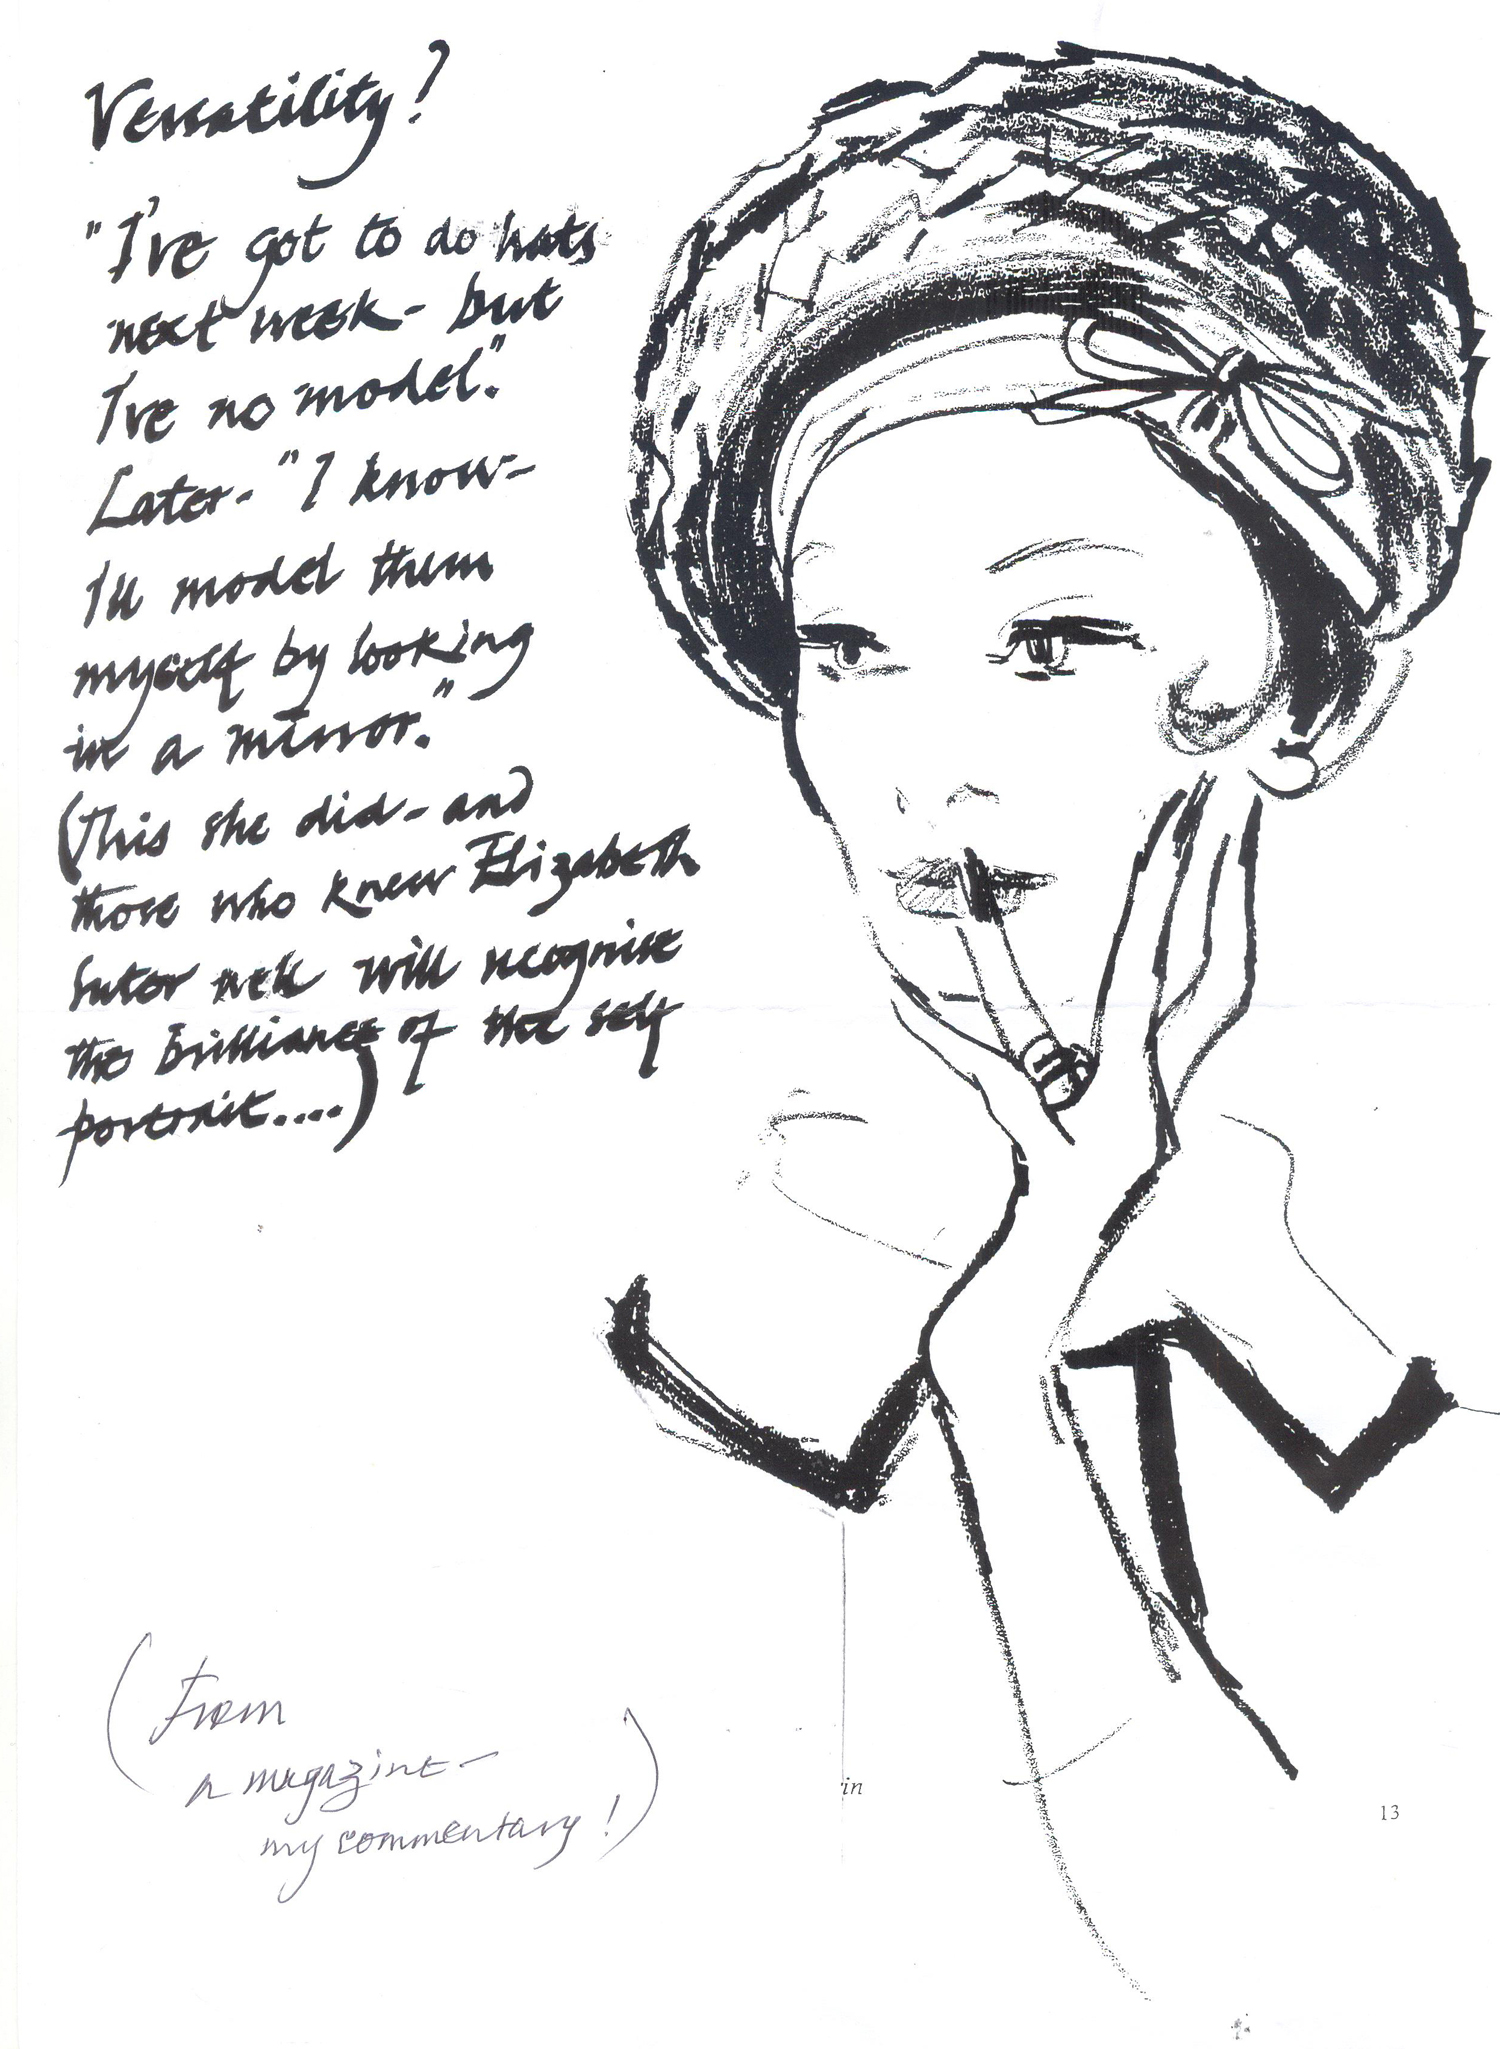 Versatility?
"I've got to do hats
next week - but
I've no model."
Later - "I know -
I'll model them
myself by looking
in a mirror."
(This she did - and
those who knew Elizabeth
Suter well will recognise
the brilliance of the self
portrait....)
(From
a magazine -
my commentary!)
in
13